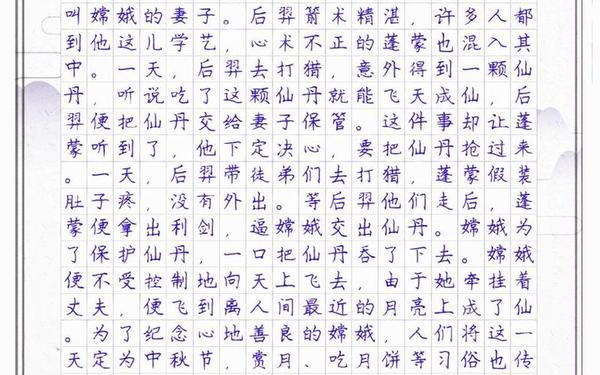 叫嫦娥的妻子。后羿箭术精湛，许多人都
到他这儿学艺，心术不正的蓬蒙也混入其
中。一天，后羿去打猎，意外得到一颗仙
丹，听说吃了这颗仙丹就能飞天成仙，后
羿便把仙丹交给妻子保管。这件事却让蓬
蒙听到了，他下定决心，要把仙丹抢过来
。一天，后羿带徒弟们去打猎，蓬蒙假装
肚子疼，没有外出。等后羿他们走后，蓬
蒙便拿出利剑，逼嫦娥交出仙丹。嫦娥为
了保护仙丹，一口把仙丹吞了下去。嫦娥
便不受控制地向天上飞去，由于她牵挂着
丈夫，便飞到离人间最近的月亮上成了仙
。为了纪念心地善良的嫦娥，人们将这一
天定为中秋节，赏月、吃月饼等习俗也传